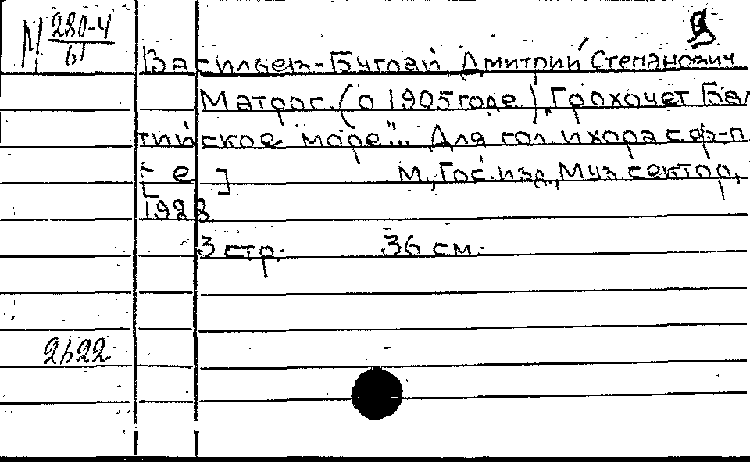 М 280-4
Васильев-Буглай, Дмитрий Степанович
Матрос. (о 1905 годе). "Грохочет Бал
тийское море"... Для гол. и хора с ф-п
[ - е - ] М., Гос. изд., Муз. сектор,
1928
3 стр. 36 см.